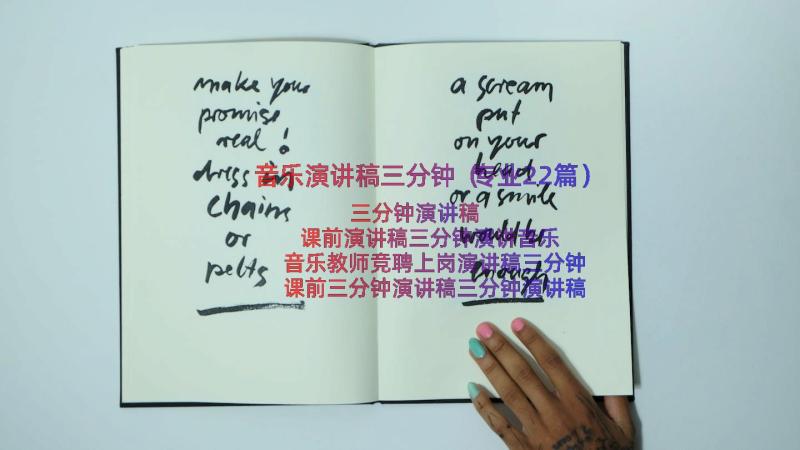 make your
promise
real!
dress in
chains
or
pelts
a scream
put
on your
head
or a smile
would be
enough
音乐演讲稿三分钟（专业22篇）
三分钟演讲稿
课前演讲稿三分钟演讲音乐
音乐教师竞聘上岗演讲稿三分钟
课前三分钟演讲稿三分钟演讲稿